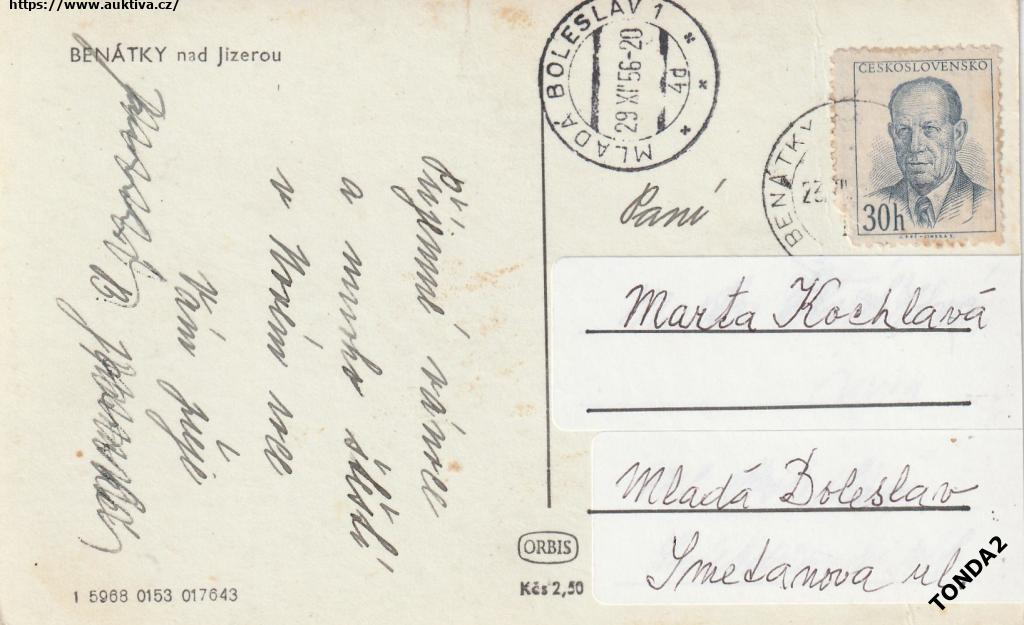 https://www.auktiva.cz/
BENÁTKY nad Jizerou
Příjemné vánoce
a mnoho štěstí
v Novém roce
Vám přeje
MLADÁ BOLESLAV 1
29 XII 56-20
4d
BENÁTKY
23.
ČESKOSLOVENSKO
30h
Paní
Marta Kochlavá
Mladá Boleslav
Smetanova ul
ORBIS
Kčs 2,50
1 5968 0153 017643
TONDA2